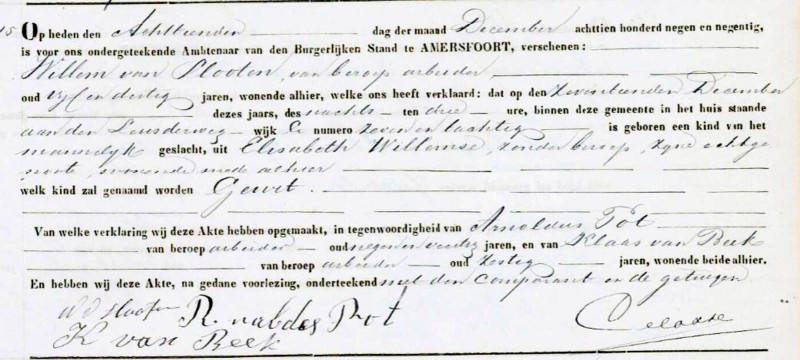 15
Op heden den Achttienden dag der maand December achttien honderd negen en negentig,
is voor ons ondergeteekende Ambtenaar van den Burgerlijken Stand te AMERSFOORT, verschenen:
Willem van Slooten, van beroep arbeider
oud vyf en dertig jaren, wonende alhier, welke ons heeft verklaard: dat op den zeventienden December
dezes jaars, des nachts ten drie ure, binnen deze gemeente in het huis staande
aan den Leusderweg wijk E numero zeven en tachtig is geboren een kind van het
mannelyk geslacht, uit Elisabeth Willemse, zonder beroep, zyne echtge
noote, wonende mede alhier
welk kind zal genaamd worden Gerrit.
Van welke verklaring wij deze Akte hebben opgemaakt, in tegenwoordigheid van Arnoldus Pot
van beroep arbeider oud negen en veertig jaren, en van Klaas van Beek
van beroep arbeider oud zestig jaren, wonende beide alhier.
En hebben wij deze Akte, na gedane voorlezing, onderteekend met den comparant en de getuigen
K van Beek